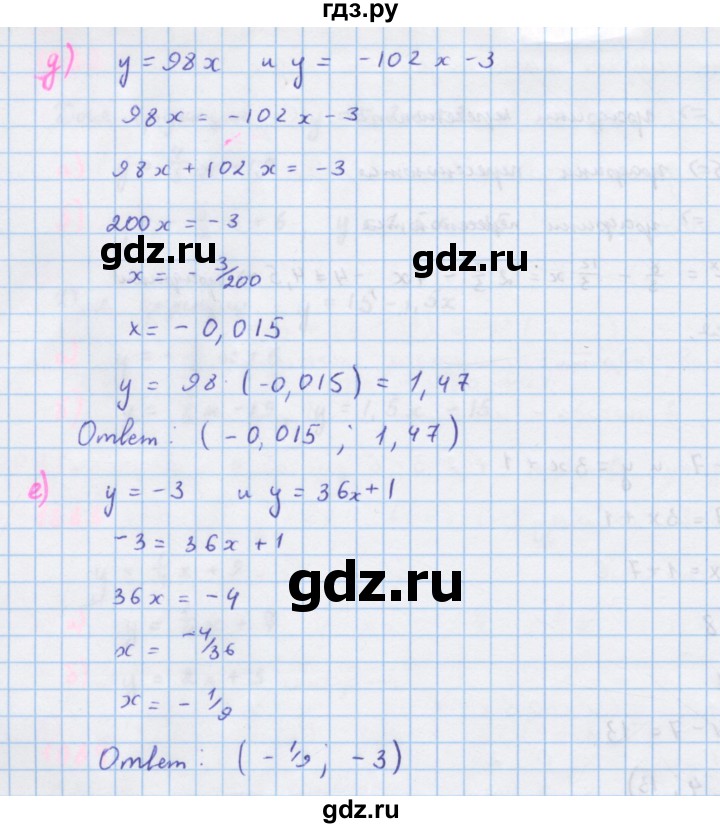 гдз.ру
д) y = 98x и y = -102x - 3
98x = -102x - 3
98x + 102x = -3
200x = -3
gdz.ru
gdz.ru
x = - 3/200
x = - 0,015
y = 98 · (-0,015) = 1,47
Ответ: (-0,015; 1,47)
е) y = -3 и y = 36x+1
-3 = 36x + 1
gdz.ru
36x = -4
x = -4/36
x = - 1/9
Ответ: (- 1/9; -3)
gdz.ru